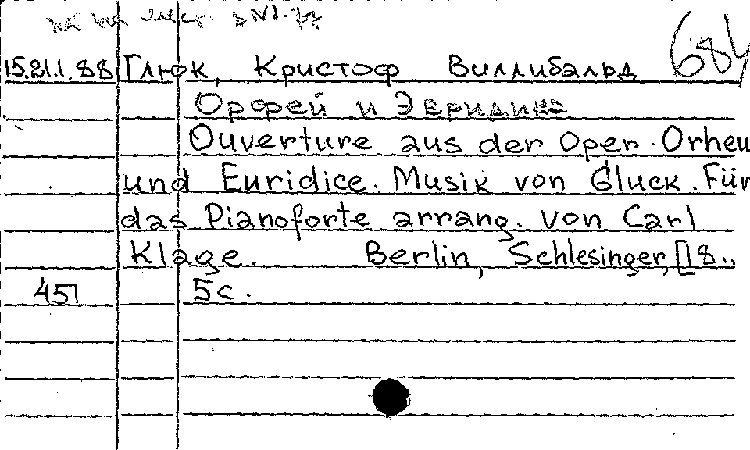 684
15.21.1.88 Глюк, Кристоф Виллибальд
Орфей и Эвридика
Ouverture aus der Oper. Orheu
und Euridice. Musik von Gluck. Für
das Pianoforte arrang. von Carl
Klage. Berlin, Schlesinger, [18..
45п 5с.